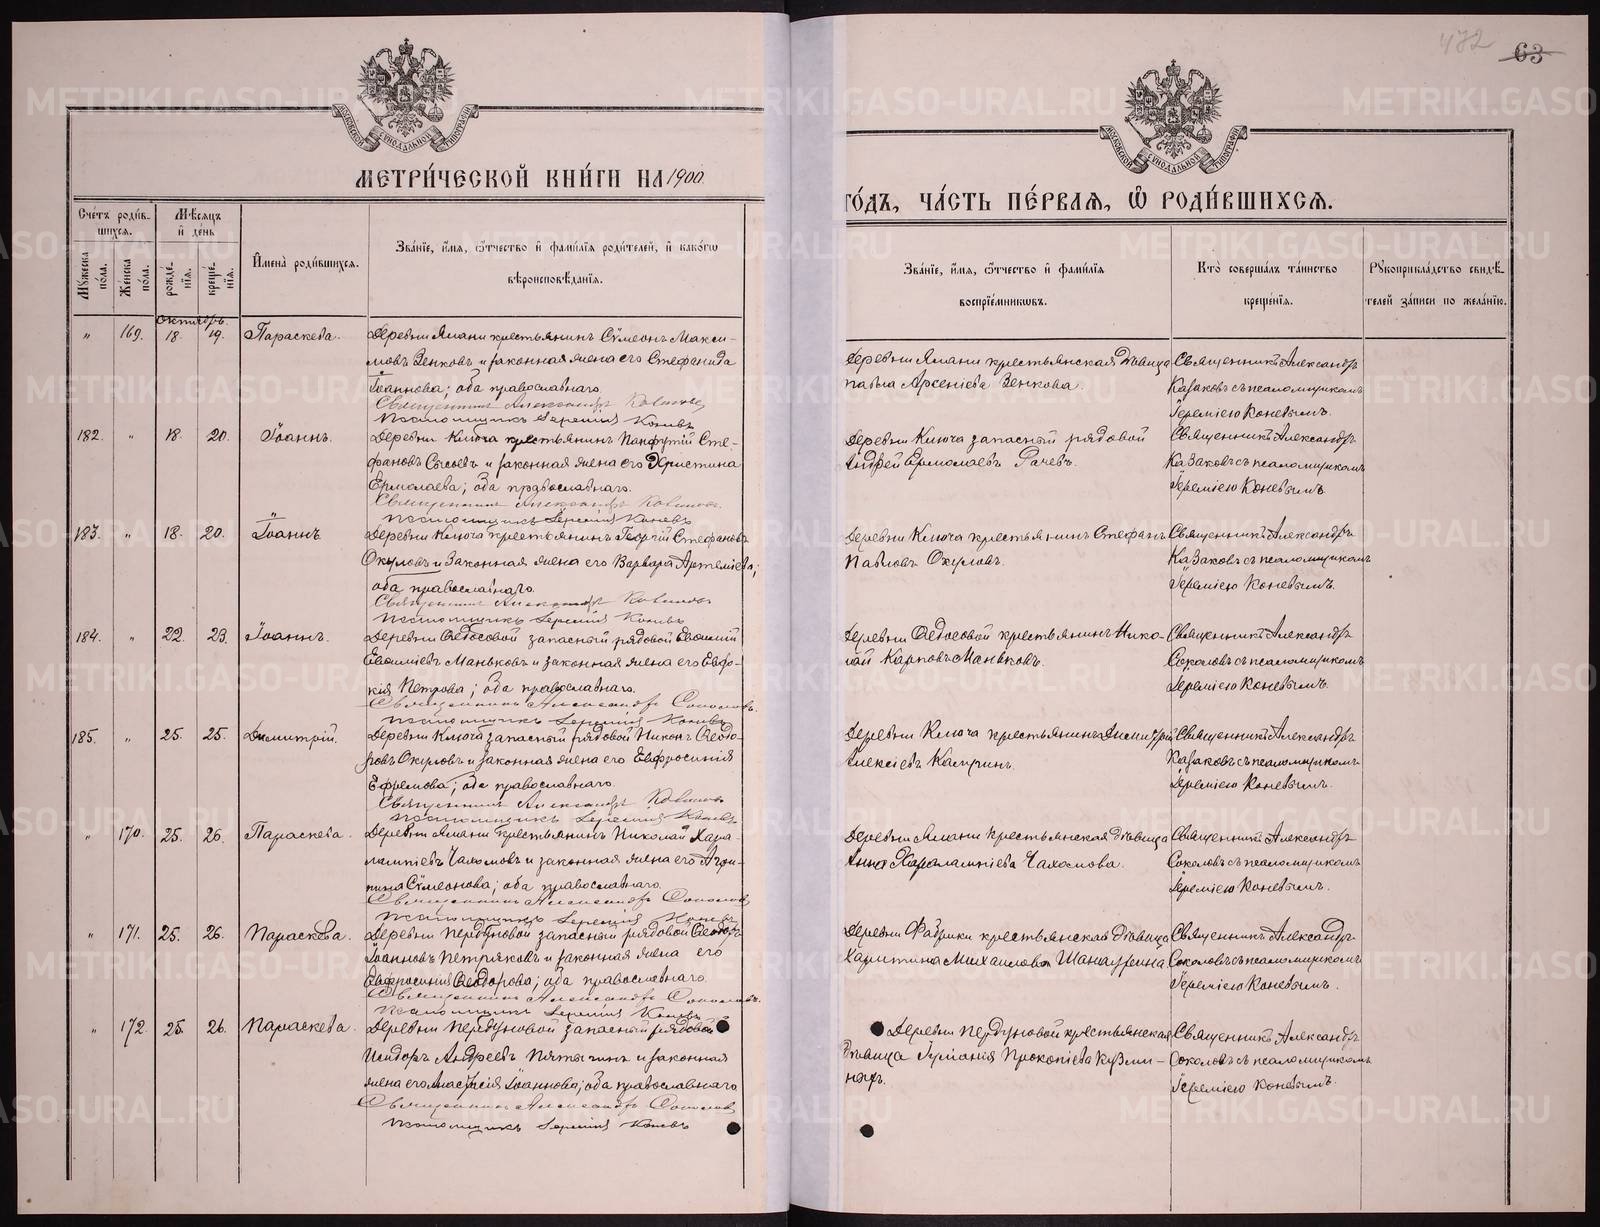 472
63
МЕТРИ́ЧЕСКОЙ КНИ́ГИ НА 1900
ГО́ДЪ, ЧА́СТЬ ПЕ́РВАѦ, Ѡ҆ РОДИ́ВШИХСѦ.
МОСКОВСКОЙ СѴНОДАЛЬНОЙ ТИПОГРАФІИ
МОСКОВСКОЙ СѴНОДАЛЬНОЙ ТИПОГРАФІИ
Сче́тъ роди́вшихсѧ.
Мꙋжеска по́ла.
Же́нска по́ла.
Мѣ́сѧцъ и҆ де́нь
рожде́нїѧ.
креще́нїѧ.
И҆мена̀ роди́вшихсѧ.
Зва́нїе, и҆́мѧ, ѻ҆́тчество и҆ фамї́лїѧ роди́телей, и҆ како́гѡ
вѣроисповѣ́данїѧ.
Зва́нїе, и҆́мѧ, ѻ҆́тчество и҆ фамї́лїѧ
воспрїе́мникѡвъ.
Кто̀ соверша́лъ та́инство
креще́нїѧ.
Рꙋкоприкла́дство свидѣ́-
телей за́писи по жела́нїю.
Октябрь.
" 169. 18. 19. Параскева.
Деревни Ямани крестьянинъ Сѵмеонъ Макси-
мовъ Зенковъ и законная жена его Стефанида
Іоаннова; оба православнаго
Священникъ Александръ Казаковъ
Псаломщикъ Іеремія Коневъ
Деревни Ямани крестьянская дѣвица
Павла Арсеніева Зенкова.
Священникъ Александръ
Казаковъ съ псаломщикомъ
Іереміею Коневымъ.
182. " 18. 20. Іоаннъ.
Деревни Ключа крестьянинъ Панфутій Сте-
фановъ Сысоевъ и законная жена его Христина
Ермолаева; оба православнаго.
Священникъ Александръ Казаковъ
Псаломщикъ Іеремія Коневъ
Деревни Ключа запасный рядовой
Андрей Ермолаевъ Рачевъ.
Священникъ Александръ
Казаковъ съ псаломщикомъ
Іереміею Коневымъ
183. " 18. 20. Іоаннъ
Деревни Ключа крестьянинъ Георгій Стефановъ
Окуловъ и законная жена его Варвара Артеміева;
оба православнаго.
Священникъ Александръ Казаковъ
Псаломщикъ Іеремія Коневъ
Деревни Ключа крестьянинъ Стефанъ
Павловъ Окуловъ.
Священникъ Александръ
Казаковъ съ псаломщикомъ
Іереміею Коневымъ.
184. " 22. 23. Іоаннъ.
Деревни Ѳедосовой запасный рядовой Евѳимій
Евѳиміевъ Маньковъ и законная жена его Евдо-
кія Петрова; оба православнаго.
Священникъ Александръ Соколовъ.
Псаломщикъ Іеремія Коневъ
Деревни Ѳедосовой крестьянинъ Нико-
лай Карповъ Маньковъ.
Священникъ Александръ
Соколовъ съ псаломщикомъ
Іереміею Коневымъ.
185. " 25. 25. Димитрій.
Деревни Ключа запасный рядовой Никонъ Ѳеодо-
ровъ Окуловъ и законная жена его Евфросинія
Ефремова; оба православнаго.
Священникъ Александръ Казаковъ
Псаломщикъ Іеремія Коневъ
Деревни Ключа крестьянинъ Димитрій
Алексіевъ
Священникъ Александръ
Казаковъ съ псаломщикомъ
Іереміею Коневымъ.
" 170. 25. 26. Параскева.
Деревни Ямани крестьянинъ Николай Хара-
лампіевъ Чахомовъ и законная жена его Агри-
пина Сѵмеонова; оба православнаго.
Священникъ Александръ Соколовъ
Псаломщикъ Іеремія Коневъ
Деревни Ямани крестьянская дѣвица
Анна Харалампіева Чахомова.
Священникъ Александръ
Соколовъ съ псаломщикомъ
Іереміею Коневымъ.
" 171. 25. 26. Параскева.
Деревни Пердуновой запасный рядовой Ѳеодоръ
Іоанновъ Петряковъ и законная жена его
Евфросинія Ѳеодорова; оба православнаго.
Священникъ Александръ Соколовъ.
Псаломщикъ Іеремія Коневъ
Деревни Фабрики крестьянская дѣвица
Харитина Михаилова Шанаурина
Священникъ Александръ
Соколовъ съ псаломщикомъ
Іереміею Коневымъ.
" 172. 25. 26. Параскева.
Деревни Пердуновой запасный рядовой
Исидоръ Андреевъ Пятыгинъ и законная
жена его Анастасія Іоаннова; оба православнаго
Священникъ Александръ Соколовъ
Псаломщикъ Іеремія Коневъ
Деревни Пердуновой крестьянская
дѣвица Прокопіева Кузми-
ныхъ.
Священникъ Александръ
Соколовъ съ псаломщикомъ
Іереміею Коневымъ.
METRIKI.GASO-URAL.RU